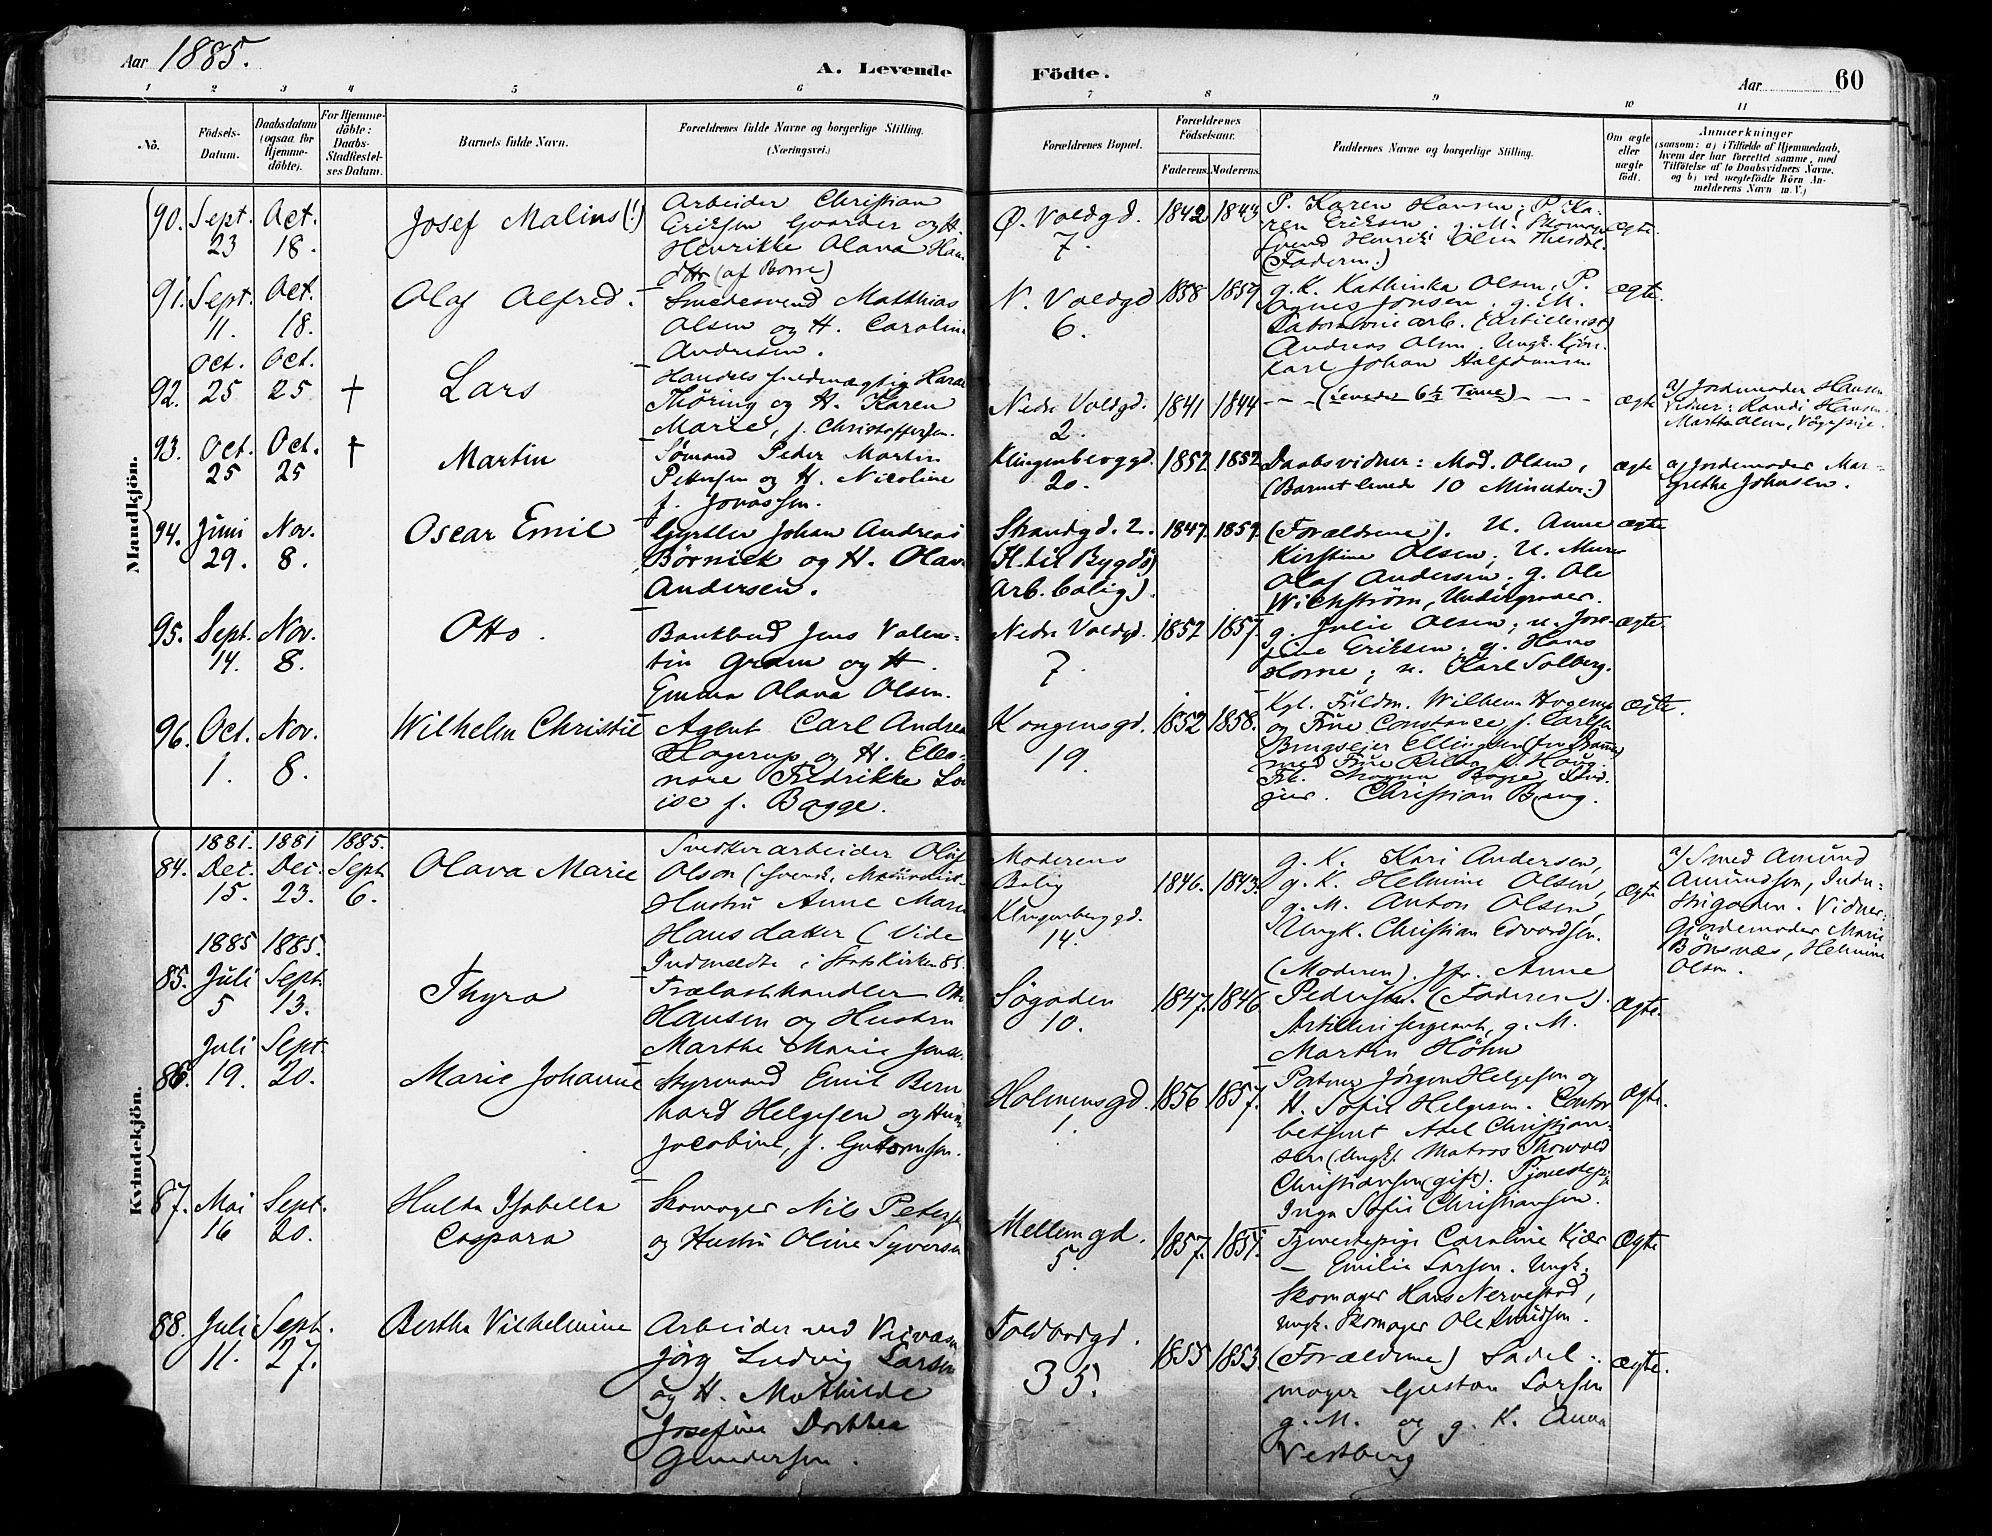 Aar 1885.
A. Levende Födte.
Aar 60
1 2 3 4 5 6 7 8 9 10 11
No.
Födsels-Datum.
Daabsdatum (ogsaa for Hjemme-döbte).
For Hjemme-döbte: Daabs-Stadfæstel-ses Datum.
Barnets fulde Navn.
Forældrenes fulde Navne og borgerlige Stilling.
(Næringsvei.)
Forældrenes Bopæl.
Forældrenes Födselsaar.
Faderens. Moderens.
Faddernes Navne og borgerlige Stilling.
Om ægte eller uægte födt.
Anmærkninger
(saasom: a) i Tilfælde af Hjemmedaab,
hvem der har forrettet samme, med
Tilföielse af to Daabsvidners Navne.
og b) ved uægtefödte Börn An-
melderens Navn m. V.)
Mandkjön.
90. Sept. 23 Oct. 18. Josef Malius (!)
Arbeider Christian
Eriksen og H.
Henrikke Olava
(af Borre)
Ø. Voldgd. 7. 1842 1843
P. Karen Hansen; P. Ka-
ren Eriksen. g. M.
svend Henrik Olsen
(Faderen.)
ægte.
91. Sept. 11. Oct. 18. Olaf Alfred.
Smedesvend Matthias
Olsen og H. Caroline
Andresen.
N. Voldgd 6. 1858 1859
g. K. Kathinka Olsen, P.
Agnes Jonsen. g. M.
Laboratoriearb. (Artillerist)
Andreas Olsen. Ungk.
Karl Johan Halfdansen
ægte.
92. Oct. 25 Oct. 25 † Lars
Handelsfuldmægtig
Thøring og H. Karen
Marie, f. Christoffersen.
Nedre Voldgd. 2. 1841 1844
- - (levede 6½ Time) - - -
ægte
a) Jordemoder Hansen
Vidner: Randi Hansen
Martha Olsen, Vågepige.
93. Oct. 25 Oct. 25 † Martin
Sømand Peder Martin
Pettersen og H. Nicoline
f. Jonassen.
Klingenberggd. 20. 1852 1852
Daabsvidner: Mad. Olsen,
(Barnet levede 10 Minuter.)
ægte
a) Jordemoder Mar-
grethe Johnsen.
94. Juni 29. Nov. 8. Oscar Emil
Gyrtler Johan Andreas
Børnick og H. Olava
Andersen.
Strandgd. 2.
(H. til Bygdø
Arb. bolig). 1847. 1859.
(Forældrene). U. Anne
Kirstine Olsen; U. Murer
Olaf Andersen; g. Ole
Wickström, Undergraver.
ægte
95. Sept. 14. Nov. 8. Otto.
Bankbud Jens Valen-
tin Gram og H.
Emma Olava Olsen.
Nedre Voldgd. 7 1852 1857.
g. Julie Olsen; u. Jose-
fine Eriksen; g. Hans
Horne; u. Karl Solberg.
ægte.
96. Oct. 1. Nov. 8. Wilhelm Christie
Agent Carl Andreas
Hagerup og H. Eleo-
nore Fredrikke Lov-
ise f. Bagge.
Kongensgd. 19. 1852 1858.
Kgl. Fuldm. Wilhelm Hagerup
og Frue Constance f. Carlsen
Brugseier Ellingsen
med Frue Hilda f. Haug.
Frk. Magna Bagge, Stud.
jur. Christian Bang.
ægte.
Kvindekjön.
84. 1881. Dec. 15. 1881 Dec. 23. 1885. Sept 6. Olava Marie
Snedkerarbeider Oluf
Olson (svensk,
Hustru Anne Marie
Hansdatter (Vide
Indmeldte i Statskirken 85.
Moderens
Bolig
Klingenberggd. 14. 1846. 1843.
g. K. Kari Andersen,
g. K. Helmine Olsen,
g. M. Anton Olsen,
Ungk. Christian Edvardsen.
ægte
a) Smed Amund
Amundsen,
Vidner:
Gjordemoder Marie
Bönsnæs, Helmine
Olsen.
85. 1885 Juli 5 1885. Sept. 13. Thyra
Trælasthandler
Hansen og Hustru
Marthe Marie
Søgaden 10. 1847. 1846.
(Moderen). Jfr. Anne
Pedersen. (Faderen).
Artillerisergeant, g. M.
Martin Höhn
Ægte.
86. Juli 19. Sept. 20. Marie Johanne
Styrmand Emil Bern-
hard Helgesen og
Jacobine, f. Guttormsen.
Holmensgd. 1. 1856 1857.
Jørgen Helgesen og
H. Sofie Helgesen. Contor
betjent Axel Christian-
sen (Ungk). Matros Thorvald
Christiansen (gift). Tjenestepige
Inga Sofie Christiansen.
Ægte.
87. Mai 16 Sept. 20. Hulda Isabella
Caspara
Skomager Nils Petersen
og Hustru Oline Syversen
Mellemgd. 5. 1857. 1857.
Tjenestepige Caroline Kjær
— Emilie Larsen. Ungk.
Skomager Hans
Ungk. Skomager Ole Knudsen.
Ægte
88. Juli 11. Sept. 27. Bertha Vilhelmine
Arbeider ved
Jörg Ludvig Larsen
og H. Mathilde
Josefine Dorthea
Gundersen.
Toldbodgd. 35. 1853 1853
(Forældrene) Sadel-
mager Gustav Larsen
g. M. og g. K. Anna
Vestberg
ægte.